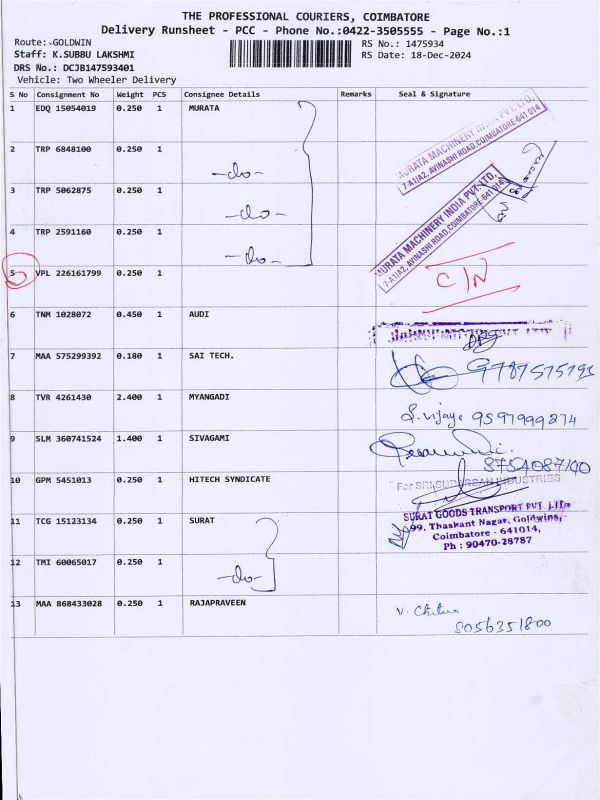 THE PROFESSIONAL COURIERS, COIMBATORE
Delivery Runsheet - PCC - Phone No.:0422-3505555 - Page No.:1
Route:-GOLDWIN
RS No.: 1475934
Staff: K.SUBBU LAKSHMI
RS Date: 18-Dec-2024
DRS No.: DCJB147593401
Vehicle: Two Wheeler Delivery
S No Consignment No Weight PCS Consignee Details Remarks Seal & Signature
1 EDQ 15054019 0.250 1 MURATA
MURATA MACHINERY INDIA PVT. LTD.
7-A1/A2, AVINASHI ROAD, COIMBATORE-641 014
2 TRP 6848100 0.250 1
-do-
3 TRP 5062875 0.250 1
-do-
MURATA MACHINERY INDIA PVT. LTD.
7-A1/A2, AVINASHI ROAD, COIMBATORE-641 014
4 TRP 2591160 0.250 1
-do-
5 VPL 226161799 0.250 1
C/N
6 TNM 1028072 0.450 1 AUDI
7 MAA 575299392 0.180 1 SAI TECH.
8 TVR 4261430 2.400 1 MYANGADI
S. vijaya 9597999874
9 SLM 360741524 1.400 1 SIVAGAMI
10 GPM 5451013 0.250 1 HITECH SYNDICATE
For SRI SUDARSAN INDUSTRIES
11 TCG 15123134 0.250 1 SURAT
SURAT GOODS TRANSPORT PVT. LTD.
99, Thaskant Nagar, Goldwins,
Coimbatore - 641014,
Ph : 90470-28787
12 TMI 60065017 0.250 1
-do-
13 MAA 868433028 0.250 1 RAJAPRAVEEN
8056351800